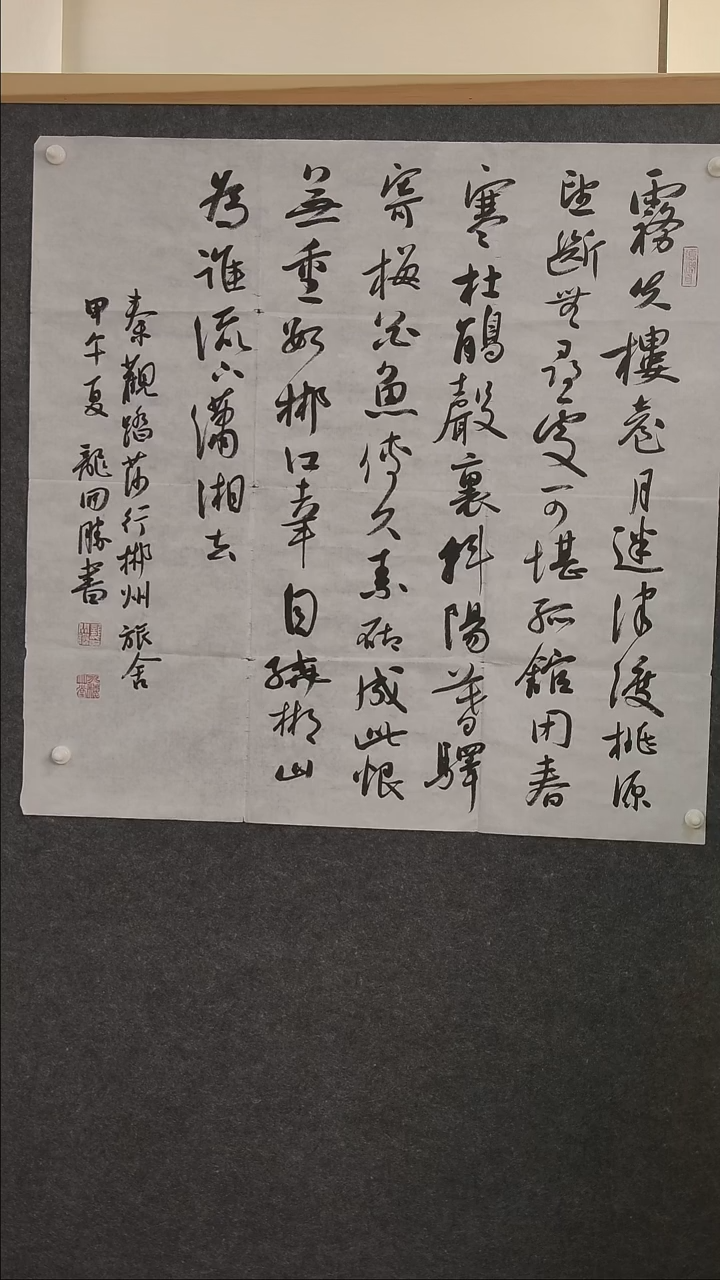 霧失樓臺月迷津渡桃源
望斷無尋處可堪孤館閉春
寒杜鵑聲裏斜陽暮驛
寄梅花魚傳尺素砌成此恨
無重數郴江幸自繞郴山
為誰流下瀟湘去
秦觀踏莎行郴州旅舍
甲午夏 龍回勝書